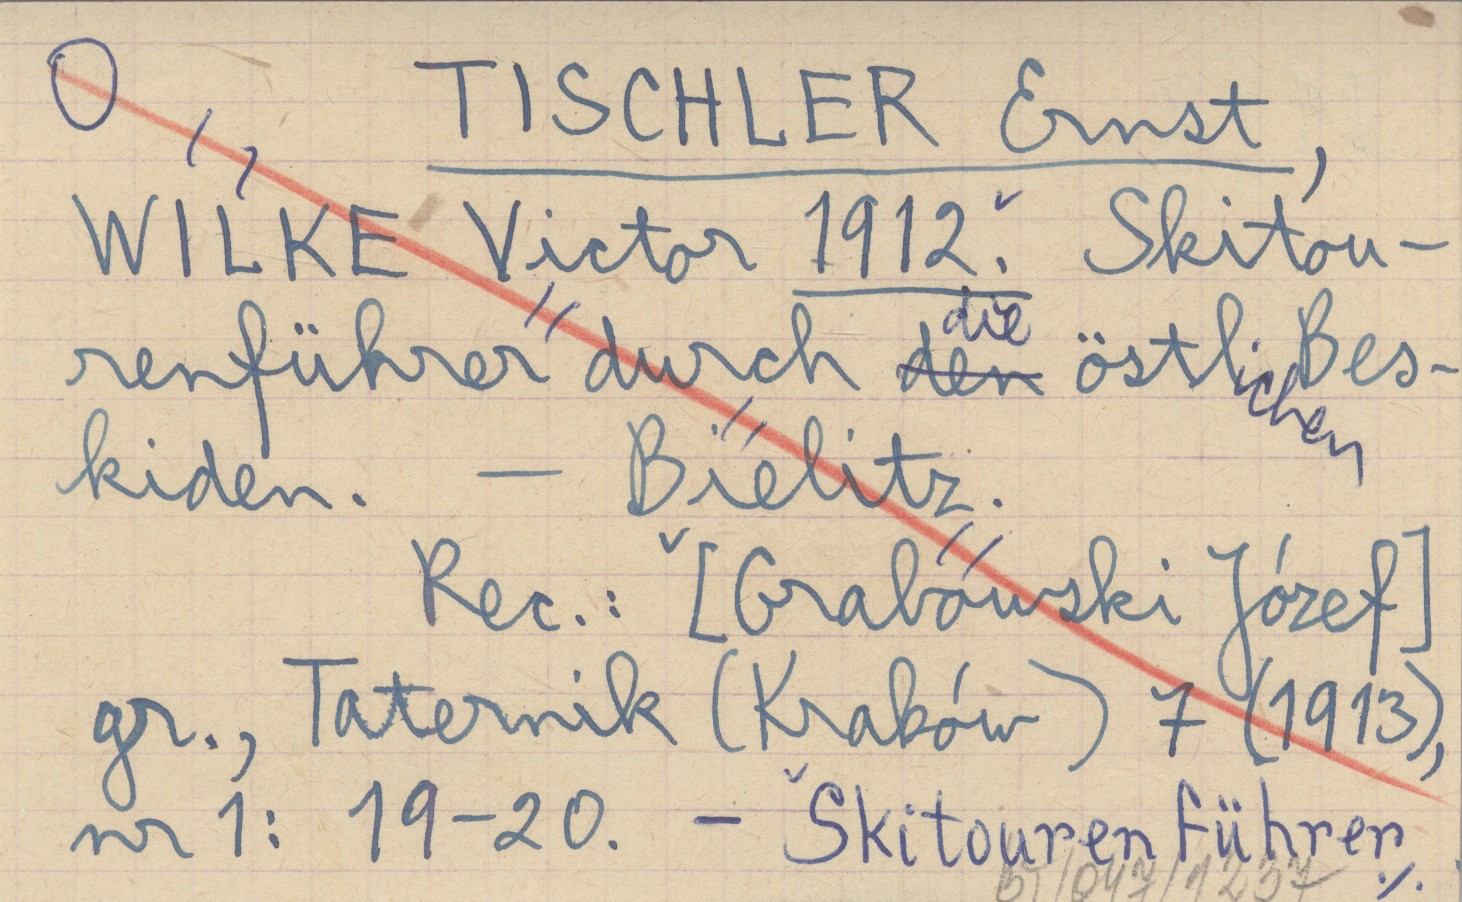 O TISCHLER Ernst,
WILKE Victor 1912. Skitou-
renführer durch den die östlichen Bes-
kiden. — Bielitz.
Rec.: [Grabowski Józef]
gr., Taternik (Kraków) 7 (1913),
nr 1: 19-20. - Skitourenführer ./.
b5/047/1237